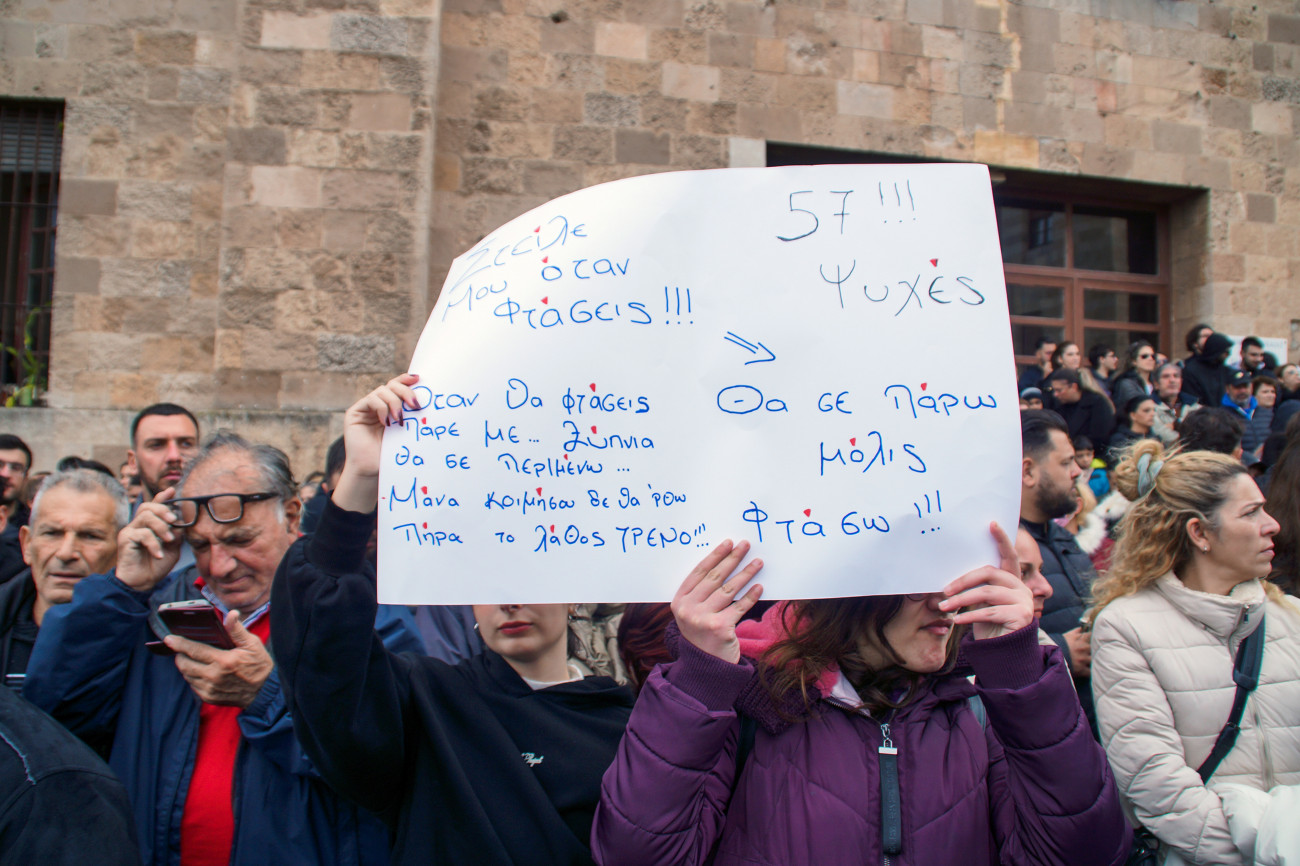 Στείλε
μου όταν
φτάσεις!!!
Όταν θα φτάσεις
Πάρε με... ξύπνια
θα σε περιμένω...
Μάνα κοιμήσου δε θα 'ρθω
Πήρα το λάθος τρένο!!!
57!!!
Ψυχές
⇒
Θα σε πάρω
μόλις
Φτάσω!!!